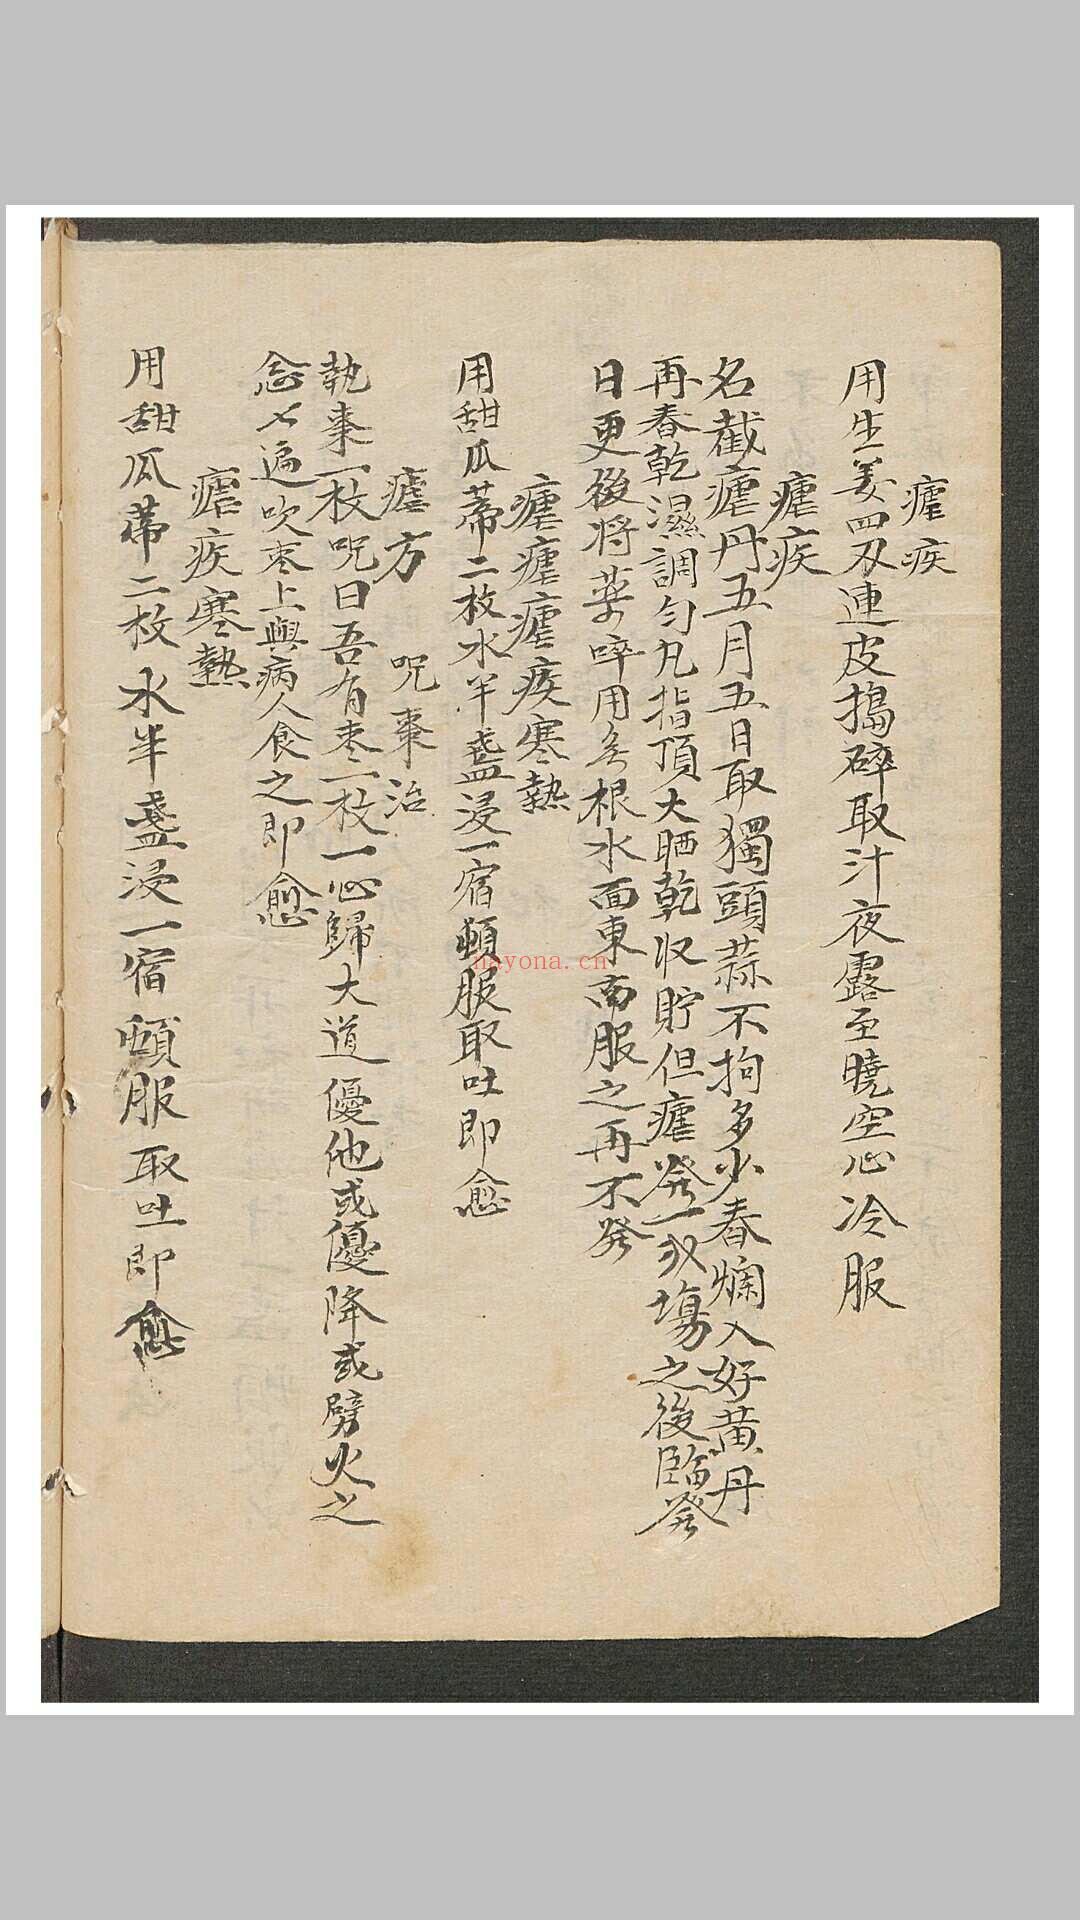 瘧疾
用生姜四两連皮搗碎取汁夜露至曉空心冷服
瘧疾
名截瘧丹五月五日取獨頭蒜不拘多少舂爛入好黃丹
再舂乾濕調勻丸指頂大晒乾収貯但瘧發一二次塲之後臨發
日更後將藥啐用無根水面東南服之再不發
瘧瘧瘧疾寒熱
用甜瓜蒂二枚水半盞浸一宿頓服取吐即愈
瘧方 呪棗治
執棗一枚呪曰吾有枣一枚一心歸大道優他或優降或劈火之
念七遍吹枣上與病人食之即愈
瘧疾寒熱
用甜瓜蒂二枚水半盞浸一宿頓服取吐即愈
nayona.cn